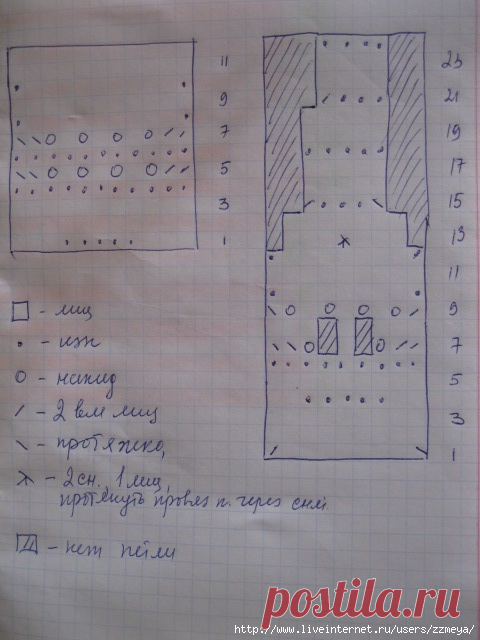 11
9
7
5
3
1
23
21
19
17
15
13
11
9
7
5
3
1
- лиц
- изн
- накид
- 2 вм лиц
- протяжка,
- 2 сн. 1 лиц,
протянуть провяз п. через снят
- нет петли
postila.ru
http://www.liveinternet.ru/users/zzmeya/